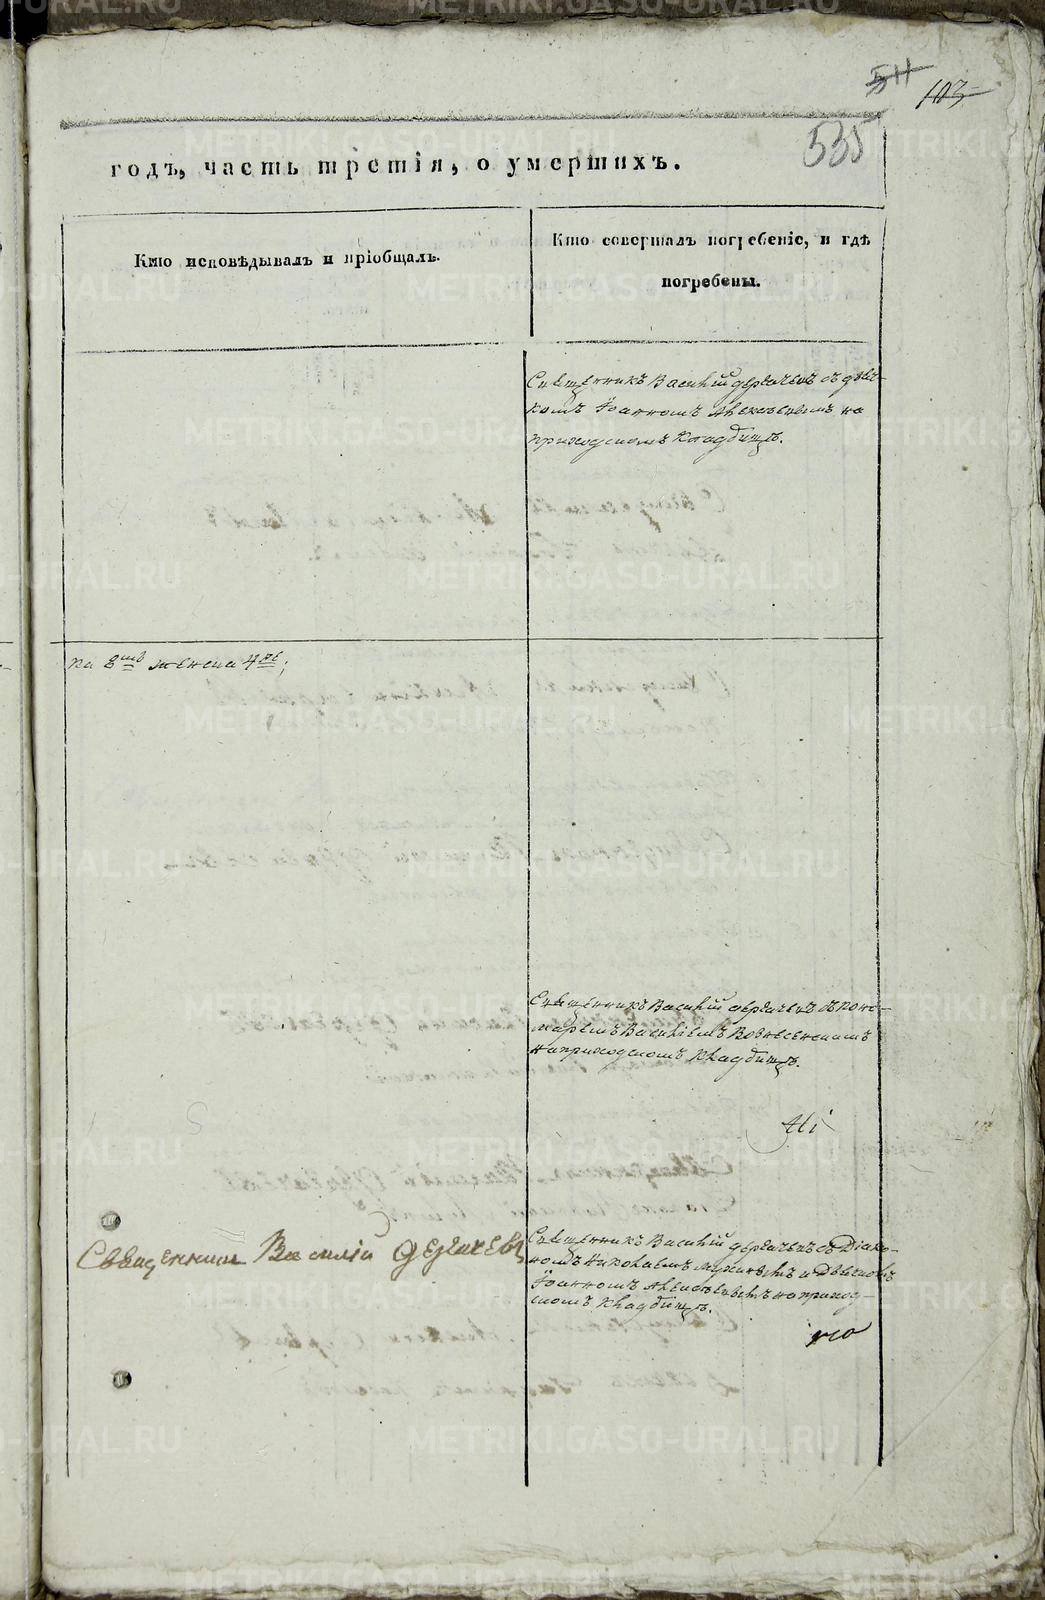 511 103
535
годъ, часть третія, о умершихъ.
Кто исповѣдывалъ и пріобщалъ.
Кто совершалъ погребеніе, и гдѣ
погребены.
Священникъ Василій Дерячевъ съ дьяч-
комъ Іоанномъ Алексѣевымъ на
приходскомъ кладбищѣ.
женска
Священникъ Василій Дерячевъ съ поно-
маремъ Василіемъ Вознесенскимъ
на приходскомъ кладбищѣ.
Священникъ Василій Дерячевъ
Священникъ Василій Дерячевъ съ Діако-
номъ Николаемъ и Дьячкомъ
Іоанномъ Алексѣевымъ на приход-
скомъ кладбищѣ.
METRIKI.GASO-URAL.RU